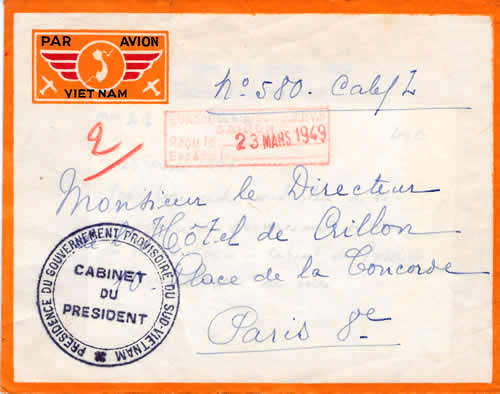 PAR AVION
VIET NAM
No 580. Cab/
2
Reçu le 23 MARS 1949
Monsieur le Directeur
Hôtel de Crillon
10 Place de la Concorde
Paris 8e
PRESIDENCE DU GOUVERNEMENT PROVISOIRE DU SUD-VIETNAM
CABINET
DU
PRESIDENT